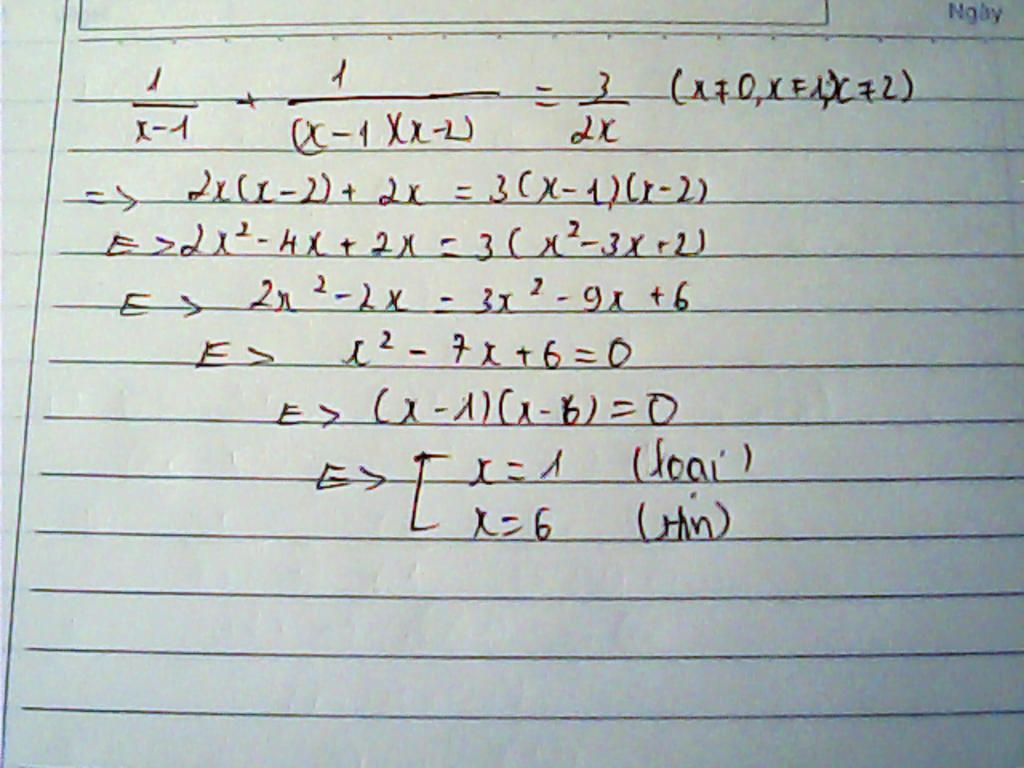 Ngày
1/(x-1) + 1/((x-1)(x-2)) = 3/(2x) (x≠0, x≠1, x≠2)
=> 2x(x-2) + 2x = 3(x-1)(x-2)
<=> 2x² - 4x + 2x = 3(x² - 3x + 2)
<=> 2x² - 2x = 3x² - 9x + 6
<=> x² - 7x + 6 = 0
<=> (x-1)(x-6) = 0
<=> [ x = 1 (loại)
x = 6